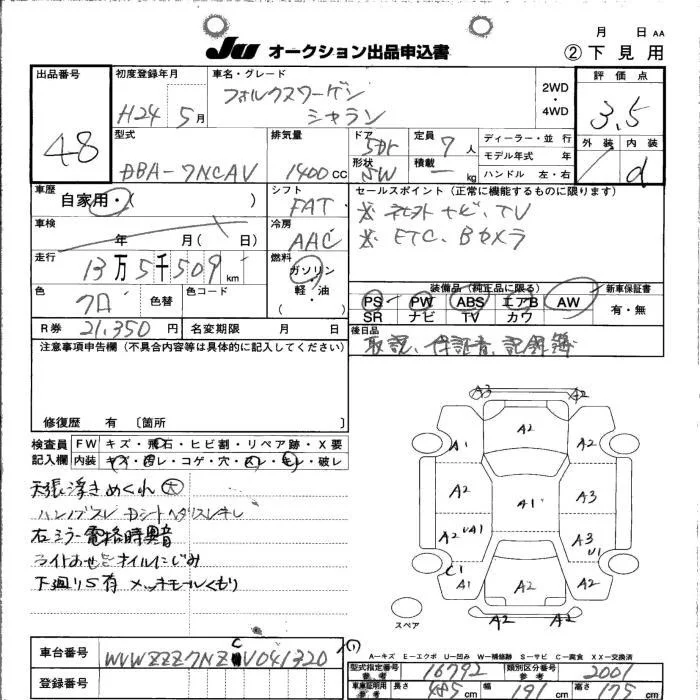 月 日 AA
JU オークション出品申込書 ② 下見用
出品番号 48
初度登録年月 H24 5月
車名・グレード フォルクスワーゲン シャラン
2WD ・ 4WD
評価点 3.5
外装 内装 d
型式 DBA-7NCAV
排気量 1400 CC
ドア 5dr 形状 SW
定員 7 人 積載 ー kg
ディーラー・並行
モデル年式 年
ハンドル 左・右
車歴 自家用・( )
シフト FAT
セールスポイント (正常に機能するものに限ります)
※ 社外ナビ、TV
※ ETC、Bカメラ
車検 年 月( 日)
冷房 AAC
走行 13万5千509 km
燃料 ガソリン・軽・油
色 クロ 色替 色コード
装備品(純正品に限る) 新車保証書
PS PW ABS エアB AW 有・無
SR ナビ TV カワ
R券 21,350 円 名変期限 月 日
後日品 取説、保証書、記録簿
注意事項申告欄(不具合内容等は具体的に記入してください)
修復歴 有 〔箇所 〕
検査員記入欄
FW キズ・飛石・ヒビ割・リペア跡・X要
内装 キズ・凹レ・コゲ・穴・スレ・モレ・破レ
天張浮きめくれ 大
ハンドブスレ Dシートヘタリスレキレ
右ミラー電格時異音
下廻りS有 メッキモールくもり
A3 A2
A1 A2 A2
A2 A1 A3
A2 UA1 A3 U1
C1 A1 A2 A2
A2 A2
スペア
A-キズ E-エクボ U-凹み W-補修跡 S-サビ C-腐食 XX-交換済
車台番号 WVWZZZ7NZCV041320 (1)
登録番号
型式指定番号 参考 16792 類別区分番号 参考 2001
車庫証明用 参考 長さ 485 cm 幅 191 cm 高さ 175 cm